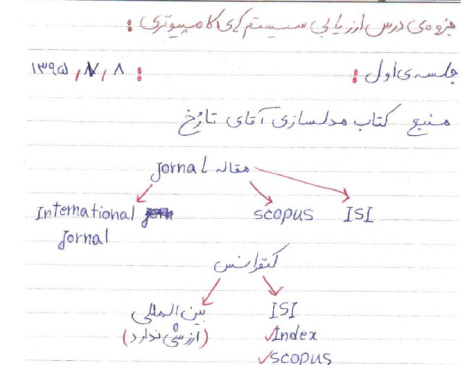 جزوه‌ی درس ارزیابی سیستم‌های کامپیوتری :
جلسه‌ی اول : : ۱۳۹۵/۷/۸
منبع کتاب مدلسازی آقای تارخ
مقاله Jornal
International Jornal
scopus
ISI
کنفرانس
بین المللی
(ارزشی ندارد)
ISI
✓Index
✓scopus